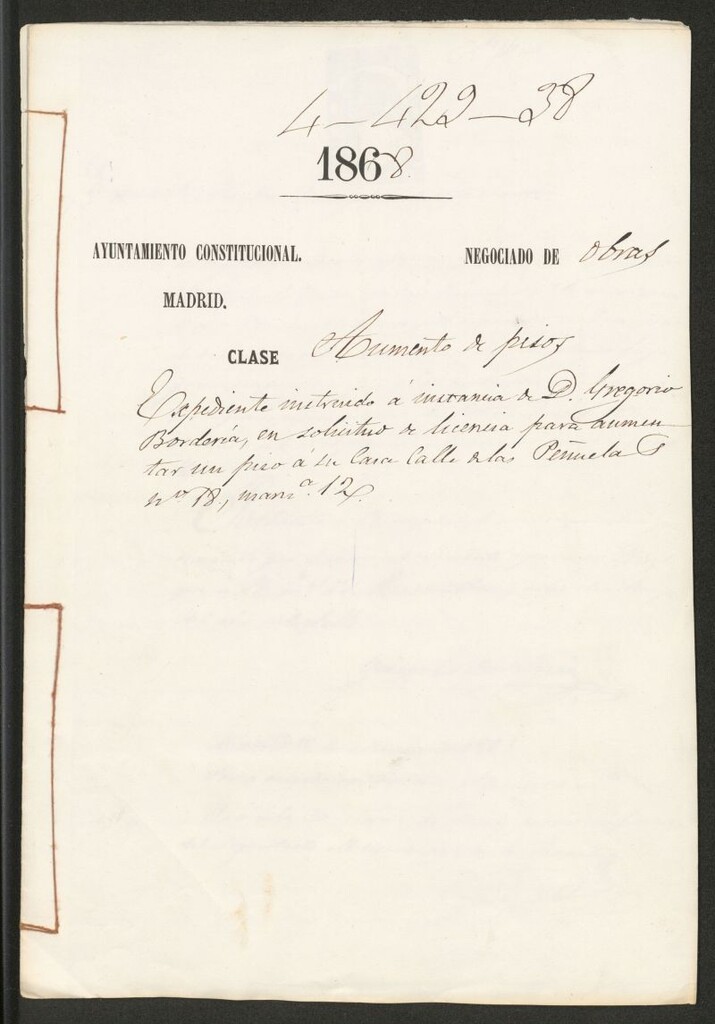 4-422-38
1868.
AYUNTAMIENTO CONSTITUCIONAL. NEGOCIADO DE obras
MADRID.
CLASE Aumento de pisos
Expediente instruido á instancia de D. Gregorio
Bordería, en solicitud de licencia para aumen
tar un piso á su Casa Calle de las Peñuelas
nº 18, manzª. 12.